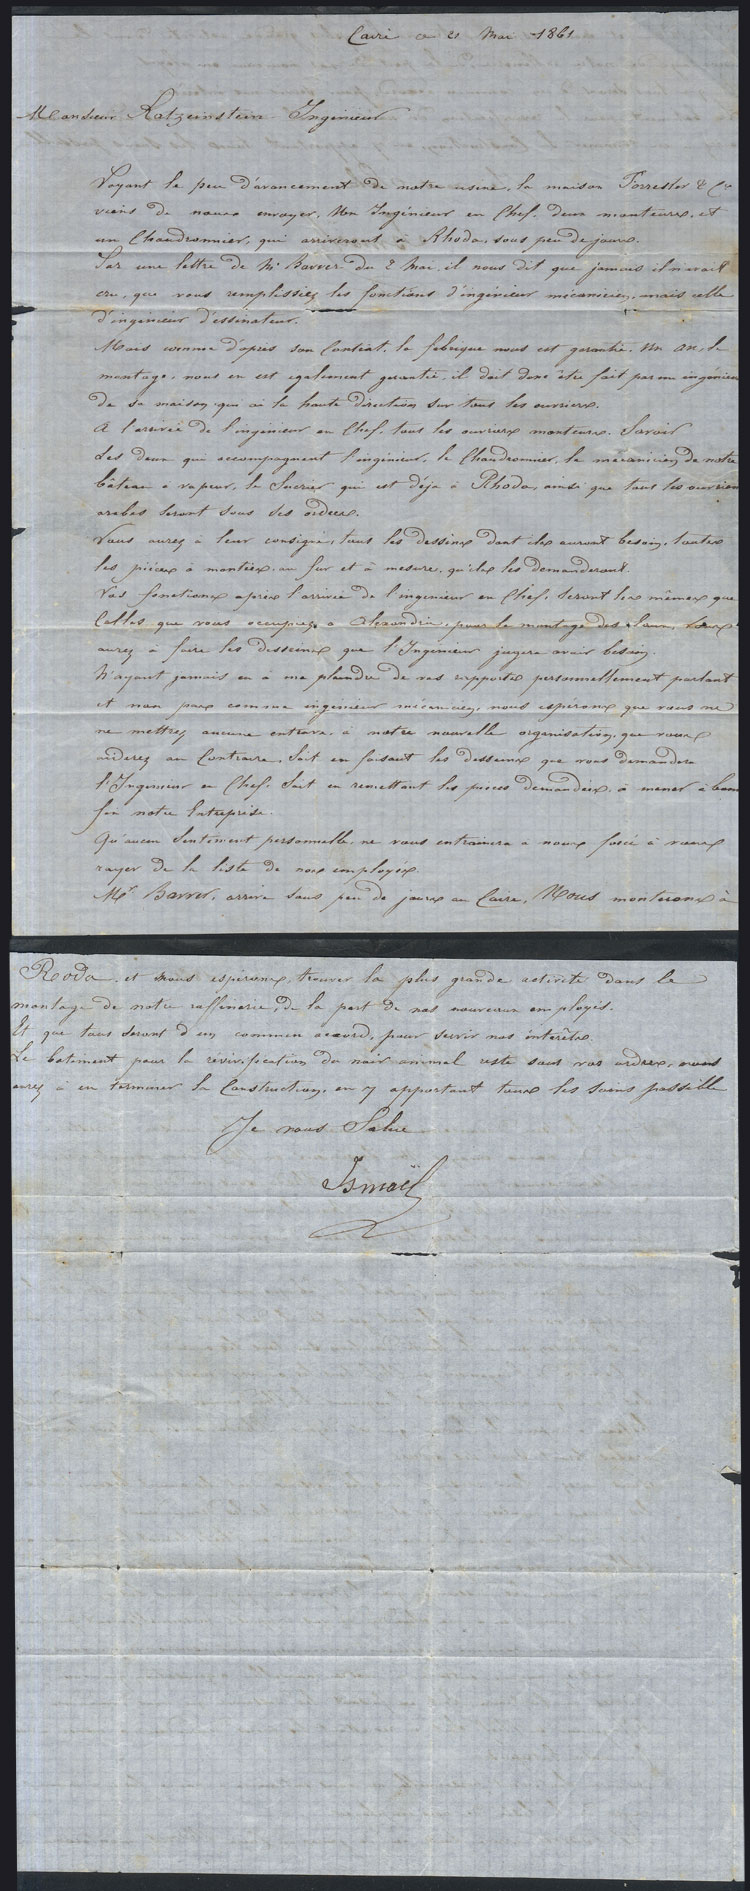 Caire ce 21 Mai 1861
Monsieur Katzenstein Ingénieur
Voyant le peu d'avancement de notre usine, la maison Forrester & Cie
viens de nous envoyer, Un Ingénieur en Chef, deux monteurs, et
un Chaudronnier, qui arriveront à Rhoda, sous peu de jours.
Par une lettre de Mr Barver du 2 Mai, il nous dit que jamais il n'avait
cru, que vous remplissiez les fonctions d'ingénieur mécanicien, mais celle
d'ingenieur d'essinateur.
Mais comme d'après son Contrat, la fabrique nous est garantie, Un An, le
montage, nous en est egalement garantie, il doit donc être fait par un ingénieur
de sa maison qui ai la haute direction sur tous les ouvriers.
A l'arrivée de l'ingénieur en Chef, tous les ouvriers monteurs. Savoir
Les deux qui accompagnent l'ingénieur, le Chaudronnier, le mécanicien de notre
bâteau à vapeur, le Sucrier qui est déja à Rhoda, ainsi que tous les ouvriers
arabes seront sous ses ordres.
Vous aurez à leur consigné, tous les dessins dont ils auront besoin, toutes
les pièces à monter, au fur et à mesure, qu'ils les demanderont.
Vos fonctions après l'arrivée de l'ingénieur en Chef, seront les mêmes que
Celles que vous occupiez a Alexandrie, pour le montage des
aurez à faire les dessins que l'Ingenieur jugera avoir besoin.
N'ayant jamais eu à me plaindre de vos rapports personnellement parlant
et non pas comme ingénieur mécanicien, nous espérons que vous ne
ne mettrez aucune entrave, à notre nouvelle organisation, que vous
aiderez au Contraire, Soit en faisant les dessins que vous demandera
l'Ingenieur en Chef, Soit en remettant les pieces demandées, à mener à bonne
fin notre Entreprise.
Qu'aucun Sentiment personnelle, ne vous entrainera à nous forcé à vous
rayer de la liste de nos employés.
Mr Barver, arrive sous peu de jours au Caire, Nous monterons à
Roda, et nous espérons, trouver la plus grande activité dans le
montage de notre raffinerie, de la part de nos nouveaux employés.
Et que tous seront d'un commun accord, pour servir nos intérêts.
Le batiment pour la revivification du noir animal reste sous vos ordres, vous
aurez à en terminer la Construction, en y apportant tous les soins possible
Je vous Salue
Ismaïl